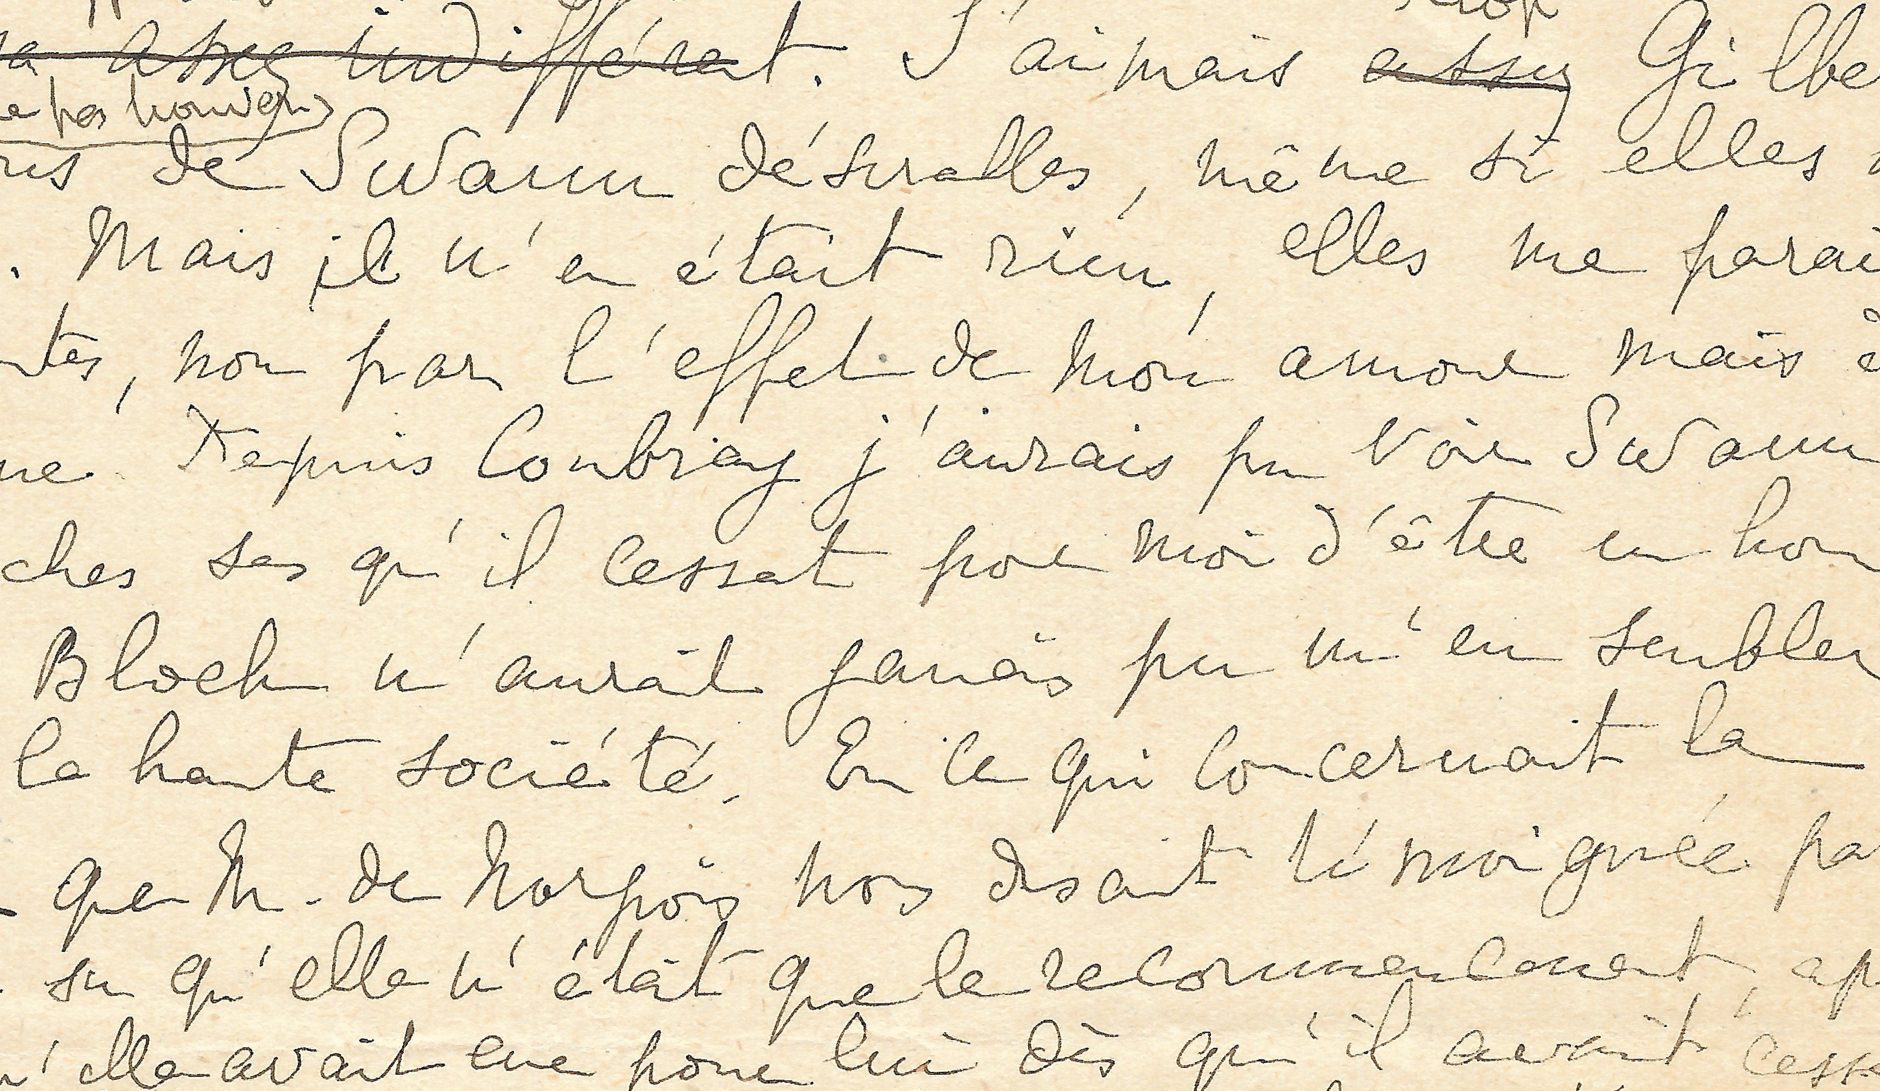 trop
assez indifférent. J'aimais assez Gilbe
pas trouver
ns de Swann désirables, même si elles
. Mais il n'en était rien, elles me parai
ntes, non par l'effet de mon amour mais
ne. Depuis Combray j'aurais pu voir Swann
ches sans qu'il cessat pour moi d'être un hom
Bloch n'aurait jamais pu m'en sembler
la haute société. En ce qui concernait la
que M. de Norpois nous disait témoignée pa
su qu'elle n'était que le recommencement, ap
u'elle avait eue pour lui dès qu'il avait cess